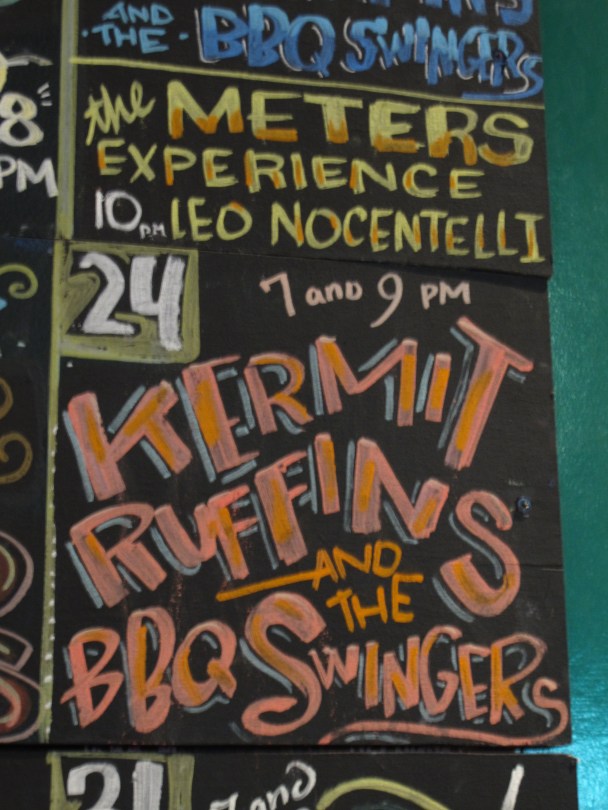 AND
THE BBQ SWINGERS
8
PM
the METERS
EXPERIENCE
10 PM LEO NOCENTELLI
24
7 and 9 PM
KERMIT
RUFFINS
AND
THE
BBQ SWINGERS
31
7 and